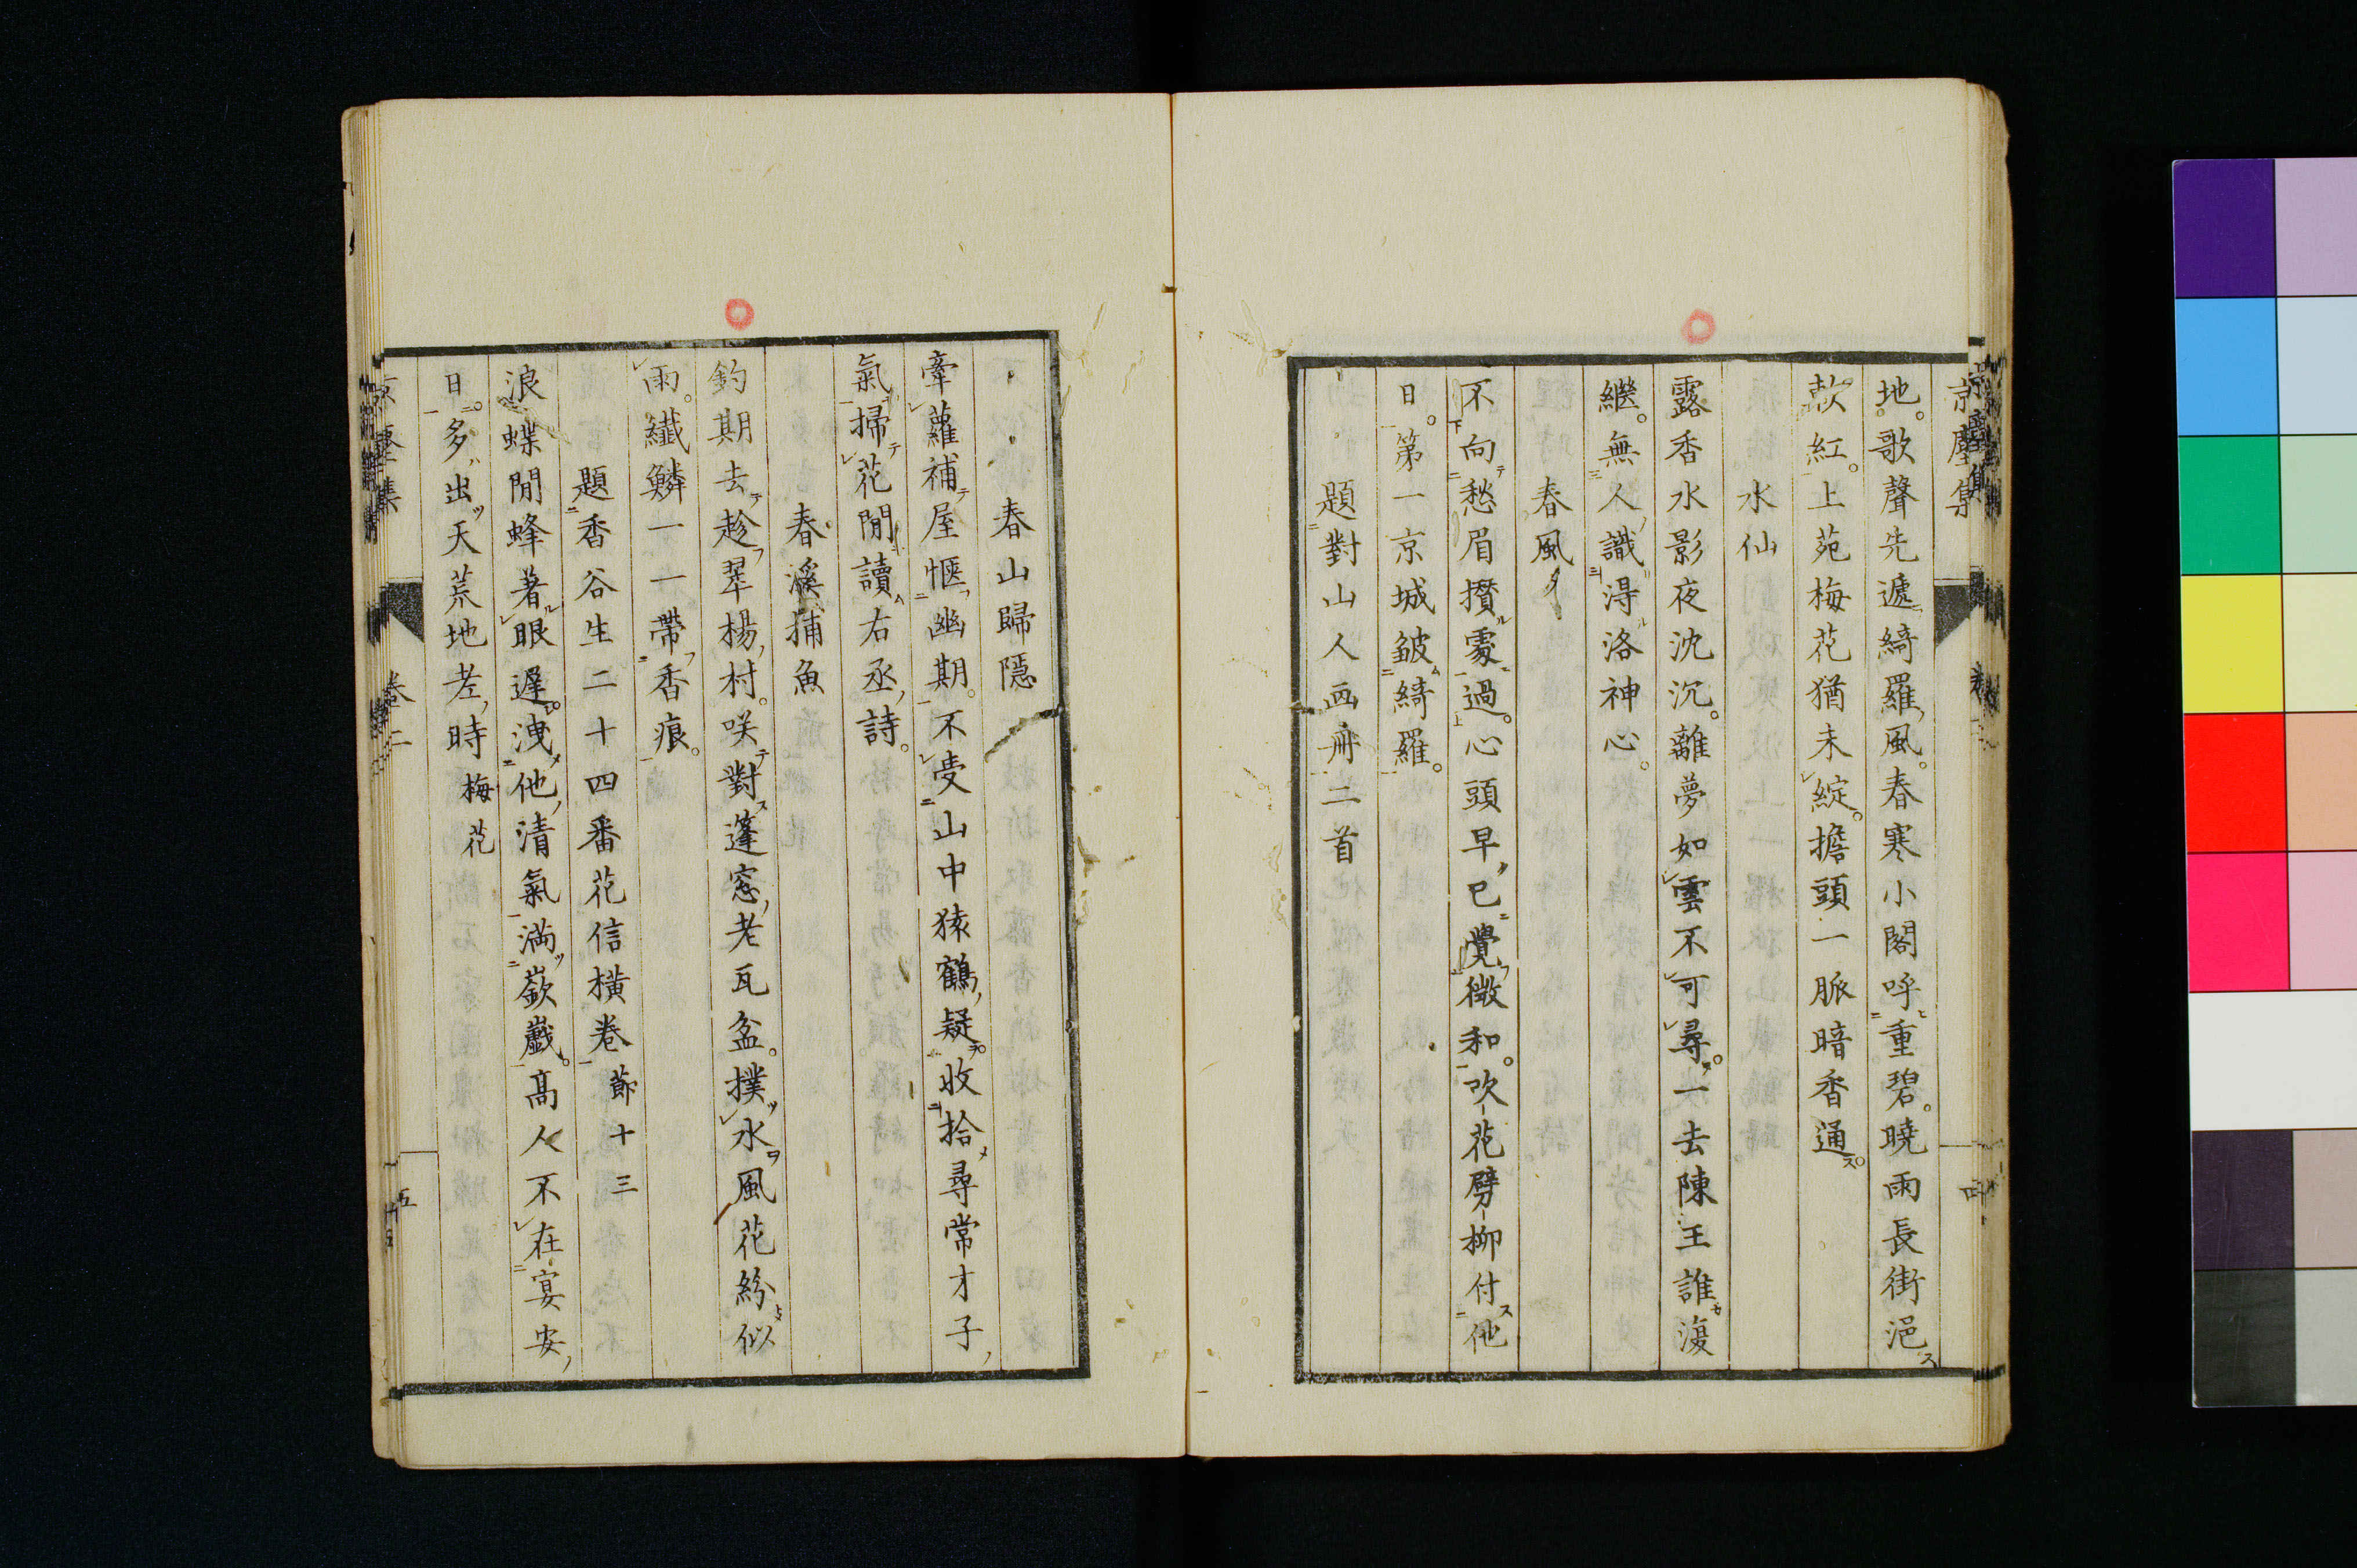 京塵集
地。歌聲先遞綺羅風。春寒小閣呼重碧。曉雨長街浥
軟紅。上苑梅花猶未綻。擔頭一脈暗香通。
水仙
露香水影夜沈沉。離夢如雲不可尋。一去陳王誰復
繼。無人識得洛神心。
春風
不向愁眉攢處過。心頭早已覺微和。吹花劈柳付他
日。第一京城皺綺羅。
題對山人画冊二首
春山歸隱
牽蘿補屋愜幽期。不受山中猿鶴疑。收拾尋常才子
氣。掃花閒讀右丞詩。
春溪捕魚
釣期去趁翠楊村。咲對蓬窓老瓦盆。撲水風花紛似
雨。纖鱗一一帶香痕。
題香谷生二十四番花信橫卷 節十三
浪蝶閒蜂著眼遲。洩他清氣滿嶔巇。高人不在宴安
日。多出天荒地老時 梅花
京塵集
卷二
五